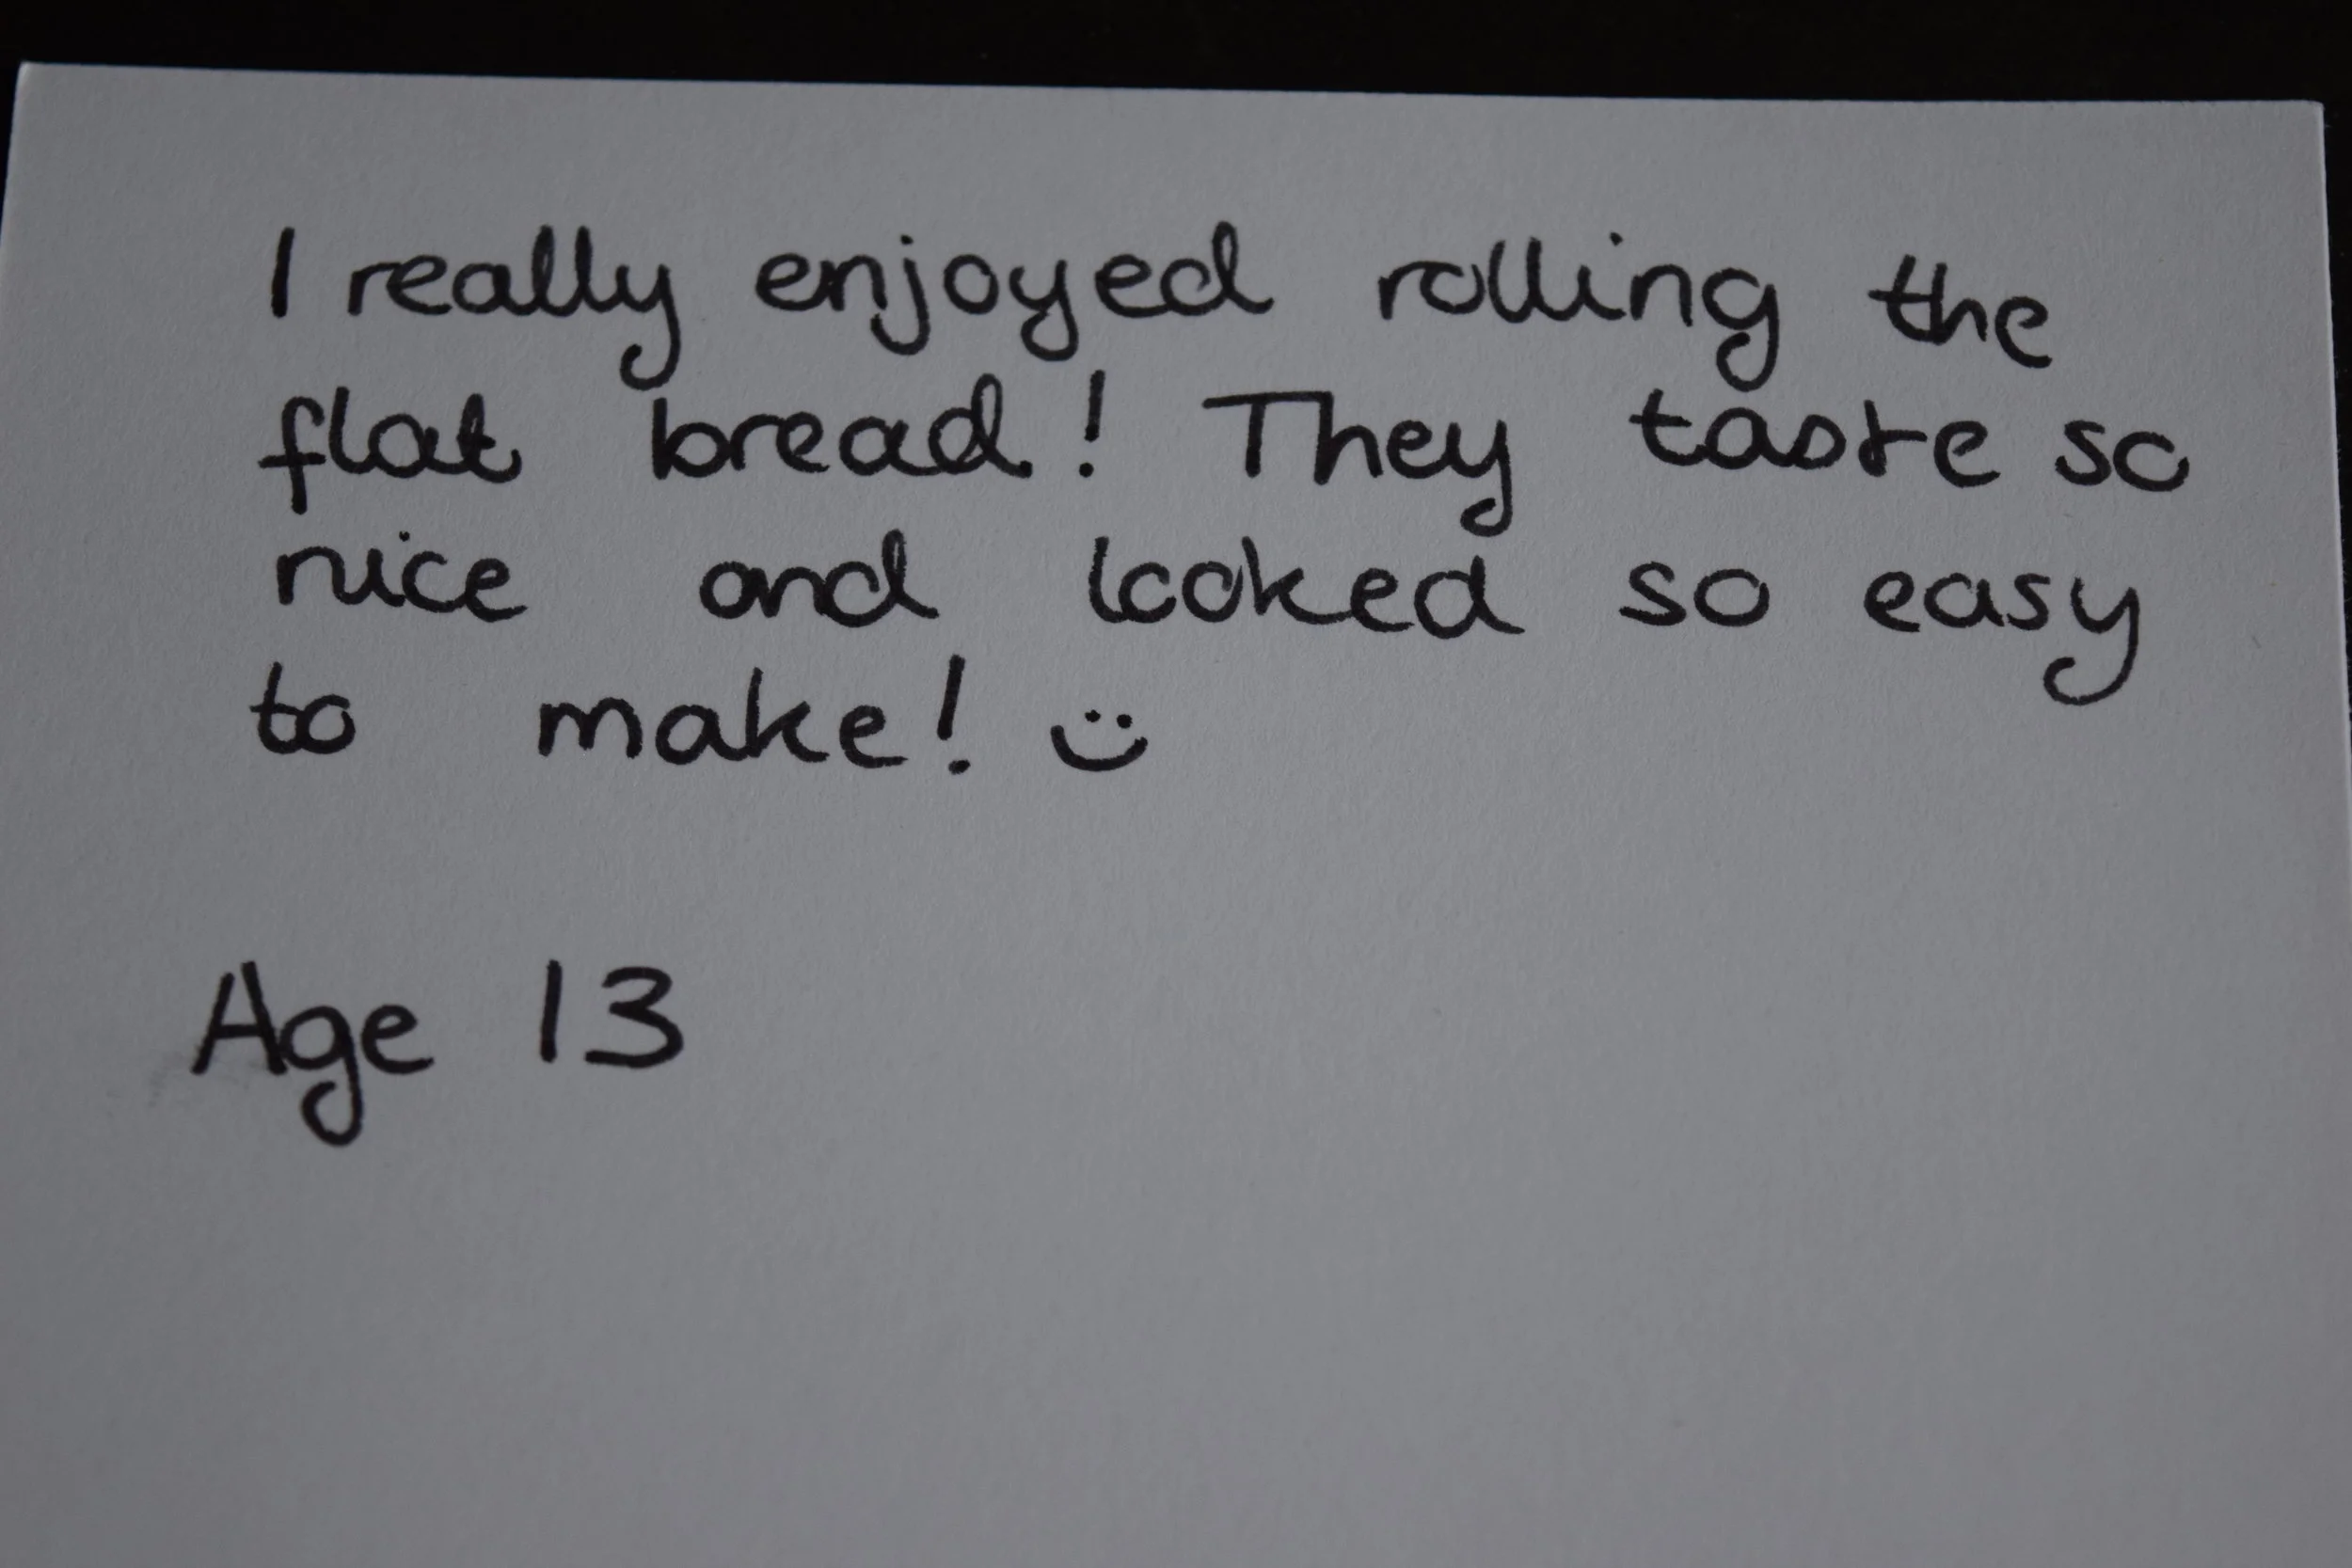 I really enjoyed rolling the
flat bread! They taste so
nice and looked so easy
to make! :)
Age 13